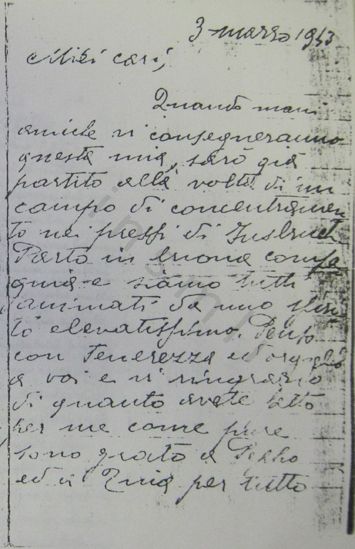 3 marzo 1943
Miei cari,
Quando mani
amiche vi consegneranno
questa mia, sarò già
partito alla volta di un
campo di concentramen
to nei pressi di Insbruck
Parto in buona compa
gnia e siamo tutti
animati da uno spiri
to elevatissimo. Penso
con tenerezza ed orgoglio
a voi e vi ringrazio
di quanto avete fatto
per me come pure
sono grato a
ed a per tutto